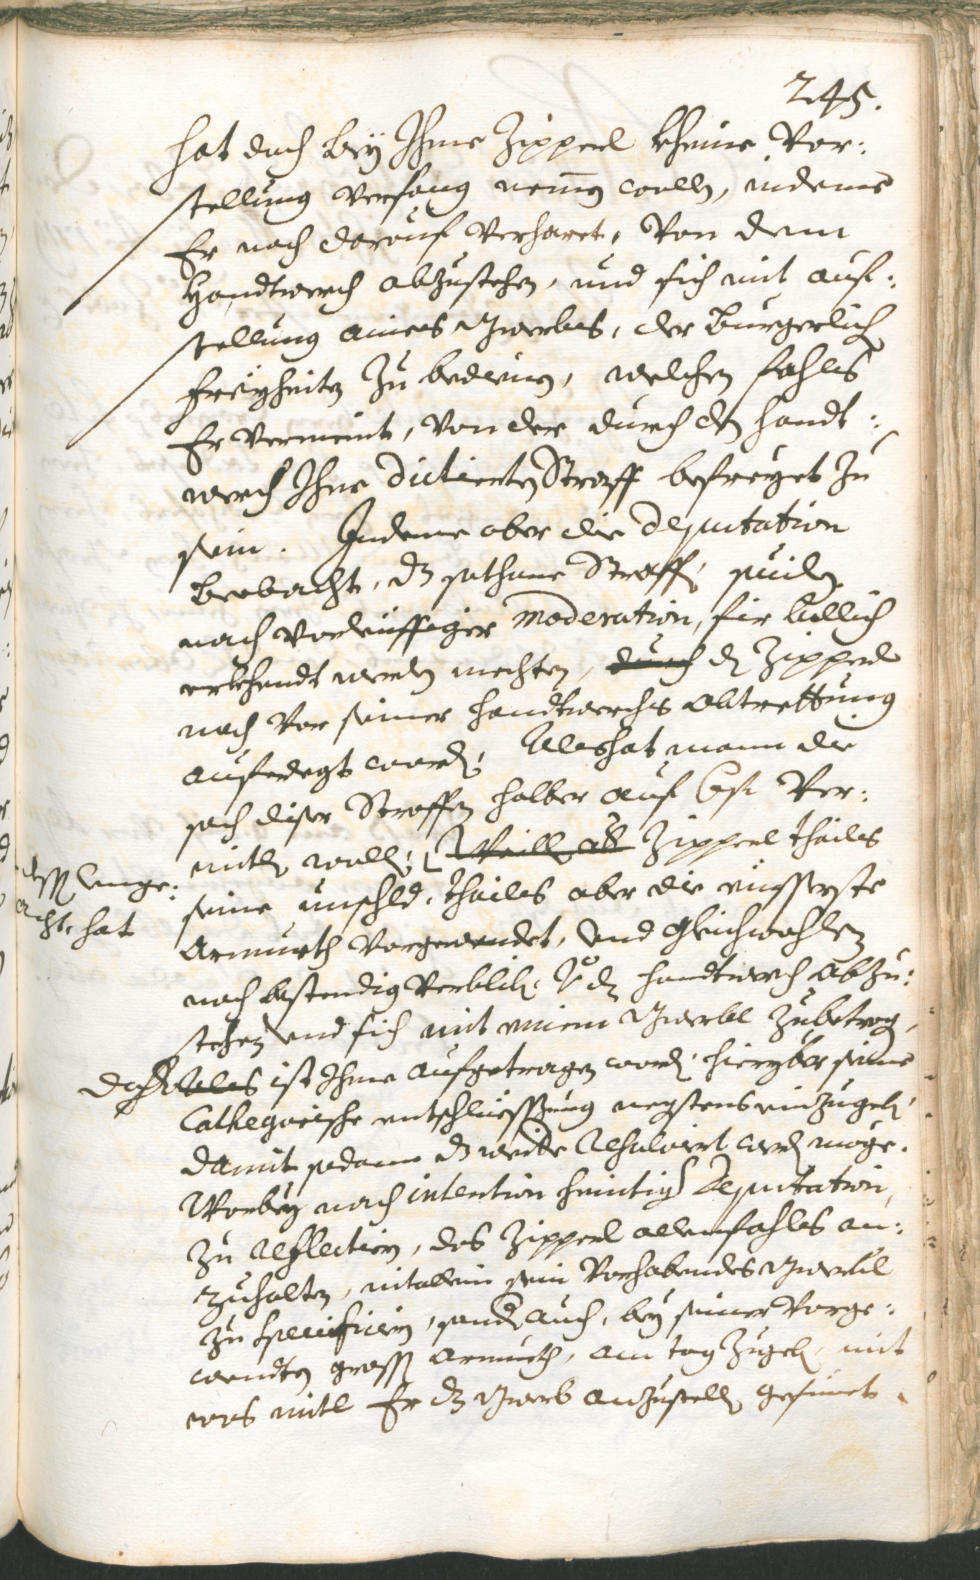 245.
hat doch bey Ihme Zipperl kheine Vor:
stellung verfang nemen wollen, indeme
Er noch darauf verharret, von dem
Handtwerch abzustehen, und sich mit auf:
stellung aines Gwerbes, der Burgerlich
freyheiten zu bedienen, welchen fahls
Er vermeint, von der durch dz handt:
werch Ihme dictierten Straff befreyet zu
sein. Indeme aber die Deputation
beobacht, dz sothane Straff,
nach vorleuffiger moderation, für billich
erkhendt werden mechten, durch dem Zipperl
noch vor seiner handtwerchs abtrettung
auferlegt worden; Als hat mann die
sach diser Straffen halber auf Ver:
mitlen wollen; Weillen aber Zipperl thails
seine unschuld, thailes aber die eusserste
Armueth vorgewendet, und gleichwohlen
noch bestendig verbliben, von dem handtwerch abzu:
stehen und sich mit einem Gwerbl zubetragen,
dessen unge:
acht hat
Als ist Ihme aufgetragen worden, hieryber seine
Cathegorische entschliessung negstens einzugeben,
damit sodann dz weitere resolviert werden möge.
Worbey nach intention heintiger Deputation,
zu reflectiern, das Zipperl allenfahls an:
zuhalten, nit allein sein vorhabendes Gwerbl
zu specificiern, sondern auch, bey seiner vorge:
wendten grossen armueth, an tag zugeben, mit
was mitl Er dz Gwerb anzustellen gesinnet.